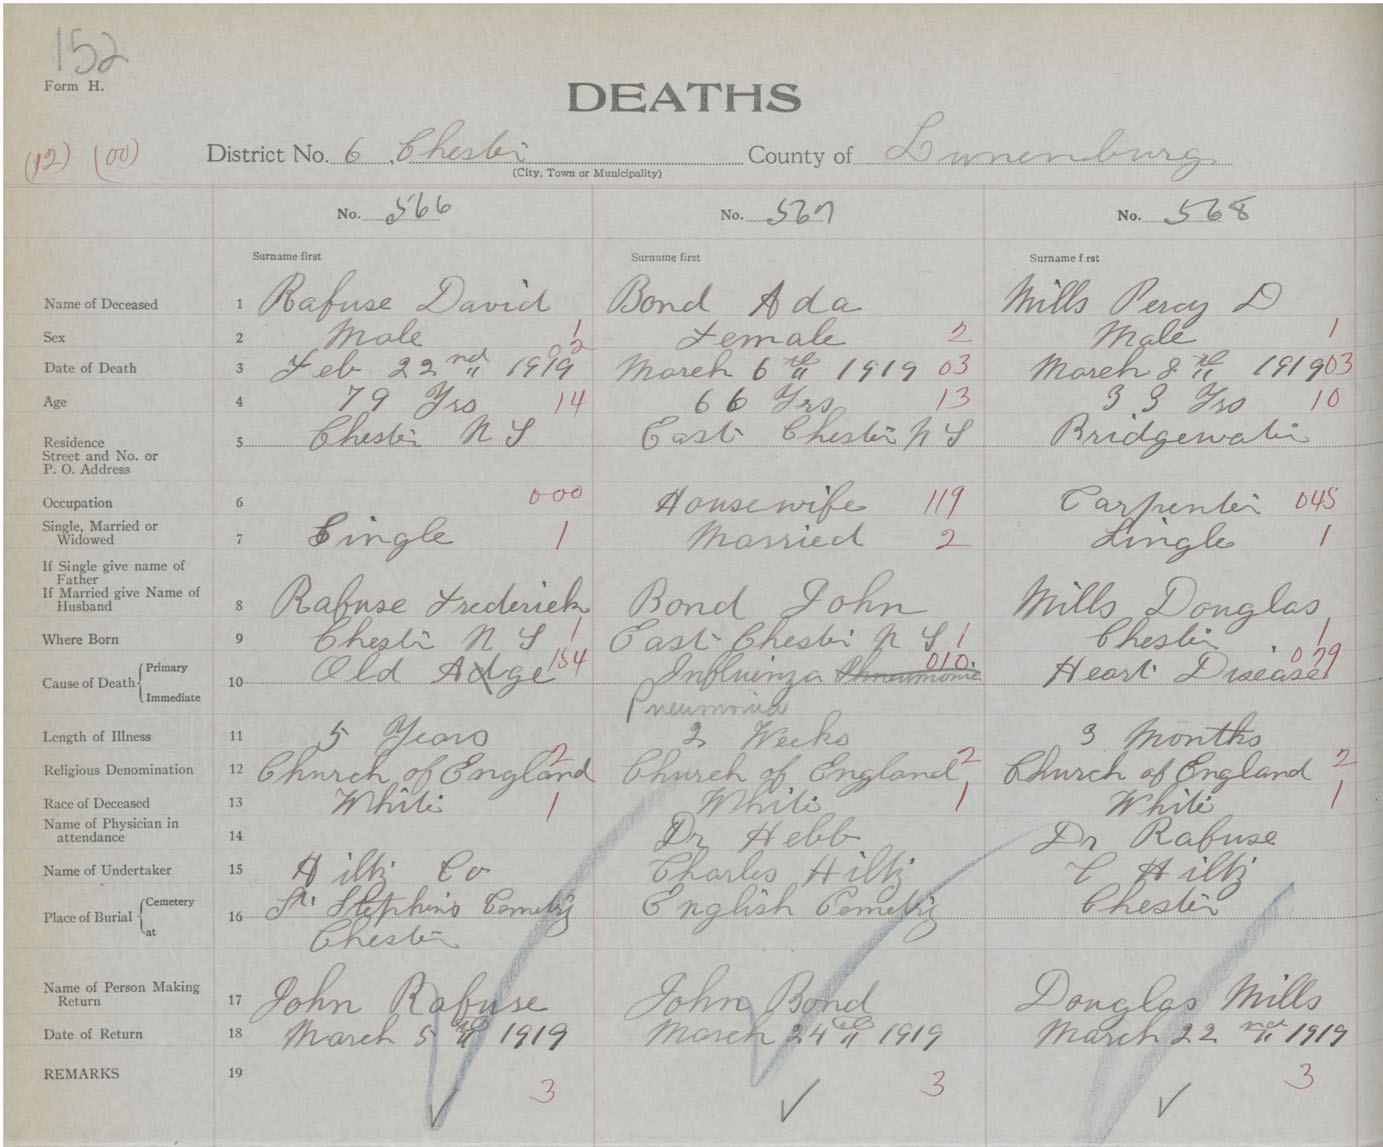 152
Form H.
DEATHS
(12) (00) District No. 6 Chester County of Lunenburg
(City, Town or Municipality)
No. 566 No. 567 No. 568
Surname first Surname first Surname f rst
Name of Deceased 1 Rafuse David Bond Ada Mills Percy D
Sex 2 Male 1 Female 2 Male 1
Date of Death 3 Feb 22nd 1919 02 March 6th 1919 03 March 8th 1919 03
Age 4 79 Yrs 14 66 Yrs 13 33 Yrs 10
Residence
Street and No. or
P. O. Address
5 Chester N S East Chester N S Bridgewater
Occupation 6 000 Housewife 119 Carpenter 045
Single, Married or
Widowed
7 Single 1 Married 2 Single 1
If Single give name of
Father
If Married give Name of
Husband
8 Rafuse Frederick Bond John Mills Douglas
Where Born 9 Chester N S 1 East Chester N S 1 Chester 1
Cause of Death Primary
Immediate
10 Old Adge 154 Influinza Phneumonia 010 Heart Disease 079
Pneumonia
Length of Illness 11 5 Years 2 Weeks 3 Months
Religious Denomination 12 Church of England 2 Church of England 2 Church of England 2
Race of Deceased 13 White 1 White 1 White 1
Name of Physician in
attendance
14 Dr Hebb Dr Rafuse
Name of Undertaker 15 Hiltz Co Charles Hiltz C Hiltz
Place of Burial Cemetery
at
16 St. Stephins Cemetry English Cemetry Chester
Chester
Name of Person Making
Return
17 John Rafuse John Bond Douglas Mills
Date of Return 18 March 5th 1919 March 24th 1919 March 22nd 1919
REMARKS 19 3 3 3